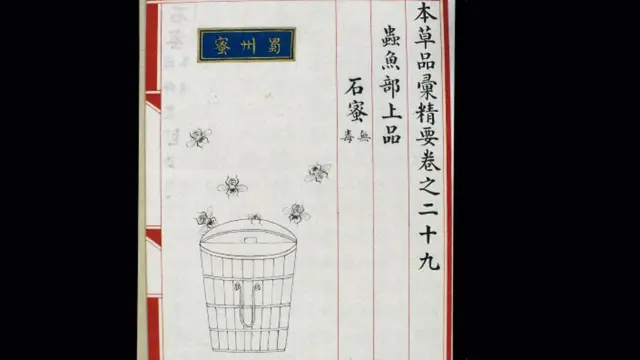 本草品彙精要卷之二十九
蟲魚部上品
石蜜 無毒
蜀州蜜